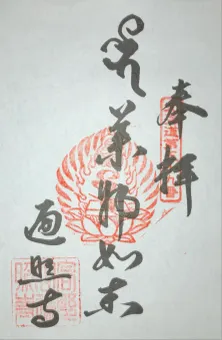 奉拝
薬師如来
遍照寺